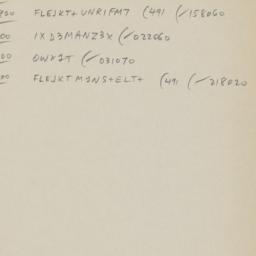 900 FLEJKT+UNRIFM7 (491 (✓158060
00 IXD3MANZ3X (✓022060
00 OWX1T (✓031070
00 FLEJKTM1NS+ELT+ (491 (✓218020